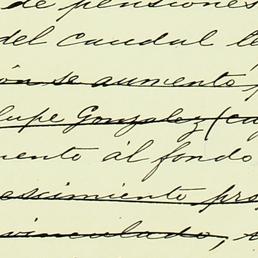 de pensiones
del caudal le
ón se aumento
lupe Gonzalez (ca
mento al fondo
escimiento pro
vinculado,